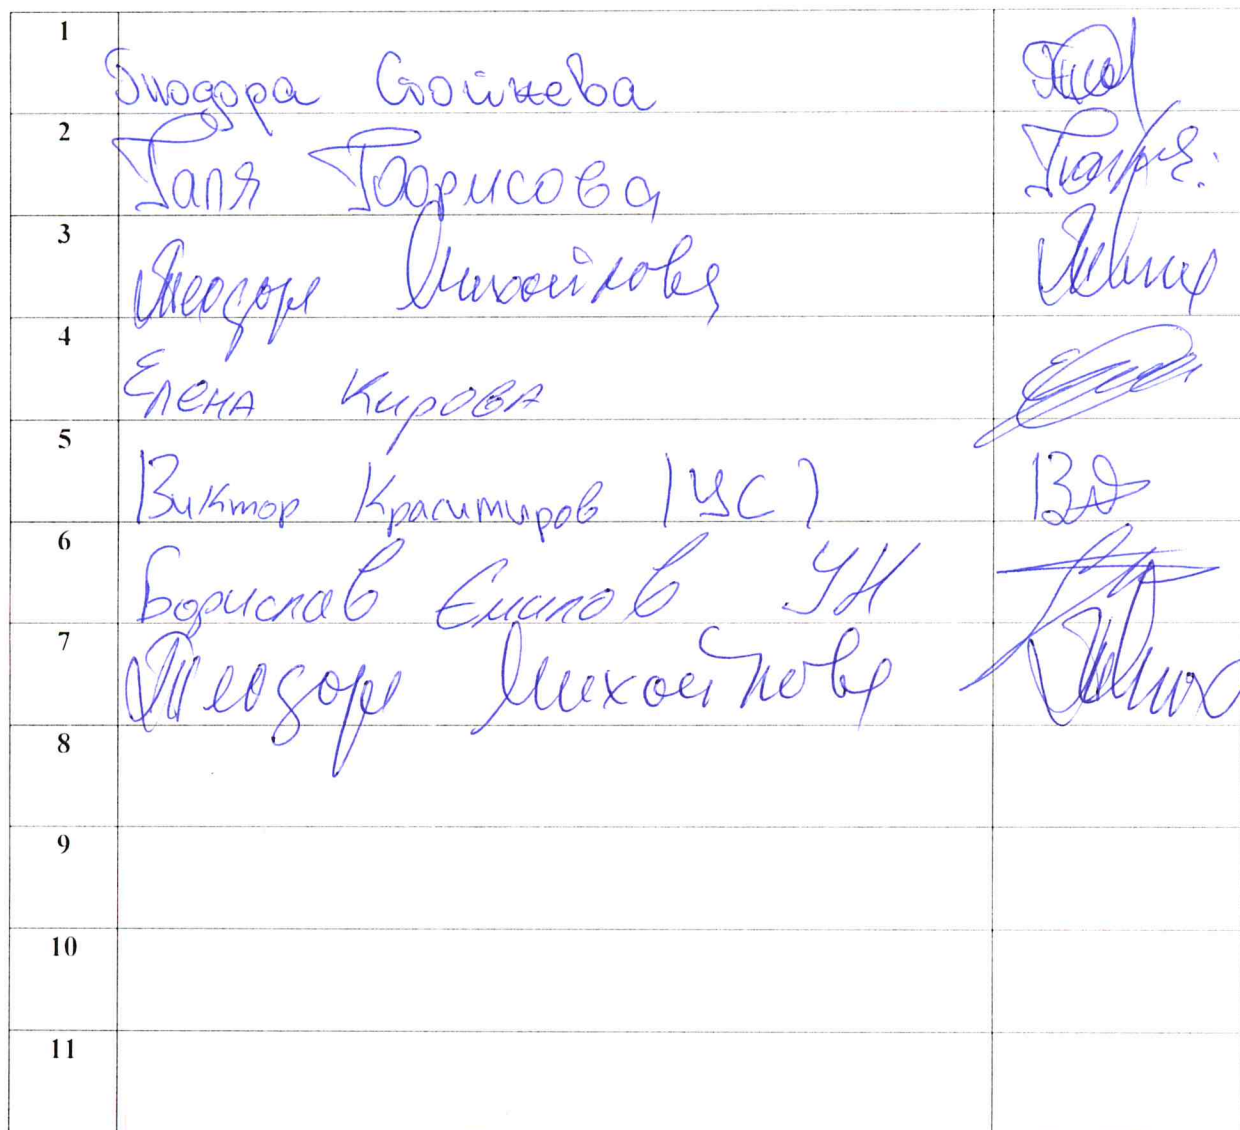 1 Теодора Стойчева
2 Галя Борисова
3 Теодора Михайлова
4 Елена Кирова
5 Виктор Красимиров (УС)
6 Борислав Емилов УН
7 Теодора Михайлова
8
9
10
11